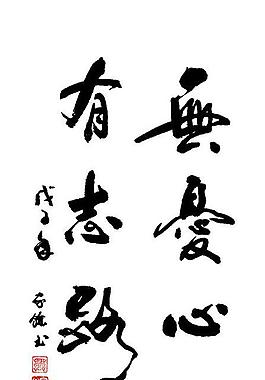 無憂心
有志路
戊子年